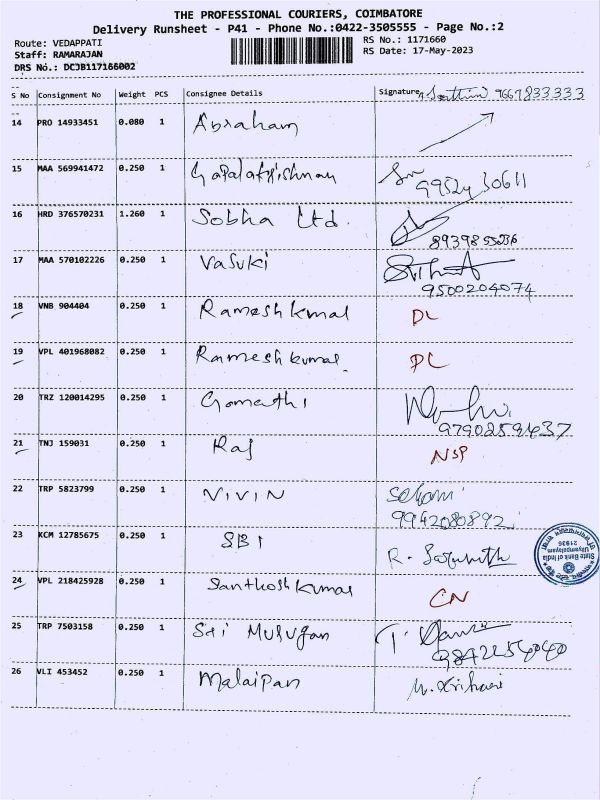 THE PROFESSIONAL COURIERS, COIMBATORE
Delivery Runsheet - P41 - Phone No.:0422-3505555 - Page No.:2
Route: VEDAPPATI
RS No.: 1171660
Staff: RAMARAJAN
RS Date: 17-May-2023
DRS No.: DCJB117166002
S No Consignment No Weight PCS Consignee Details Signature 9667833333
14 PRO 14933451 0.080 1 Abraham
15 MAA 569941472 0.250 1 Gopalakrishnan
16 HRD 376570231 1.260 1 Sobha Ltd.
17 MAA 570102226 0.250 1 Vasuki
9500204074
18 VNB 904404 0.250 1 Ramesh kumar DL
19 VPL 401968082 0.250 1 Ramesh kumar DC
20 TRZ 120014295 0.250 1 Gomathi
21 TNJ 159031 0.250 1 Raj NSP
22 TRP 5823799 0.250 1 VIVIN
9942080892
23 KCM 12785675 0.250 1 SBI
State Bank of India
21936
24 VPL 218425928 0.250 1 Santhosh kumar CN
25 TRP 7503158 0.250 1 Sri Murugan
26 VLI 453452 0.250 1 Malaipan